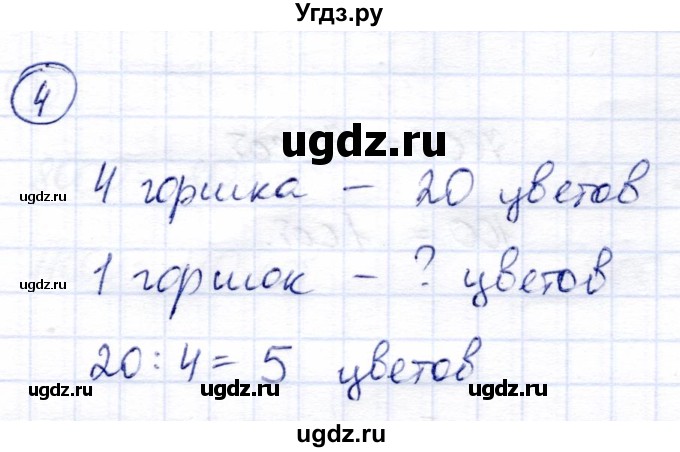 Угдз.ру
4
ugdz.ru
4 горшка – 20 цветов
ugdz.ru
ugdz.ru
1 горшок – ? цветов
ugdz.ru
ugdz.ru
20 : 4 = 5 цветов
ugdz.ru
ugdz.ru
ugdz.ru
ugdz.ru